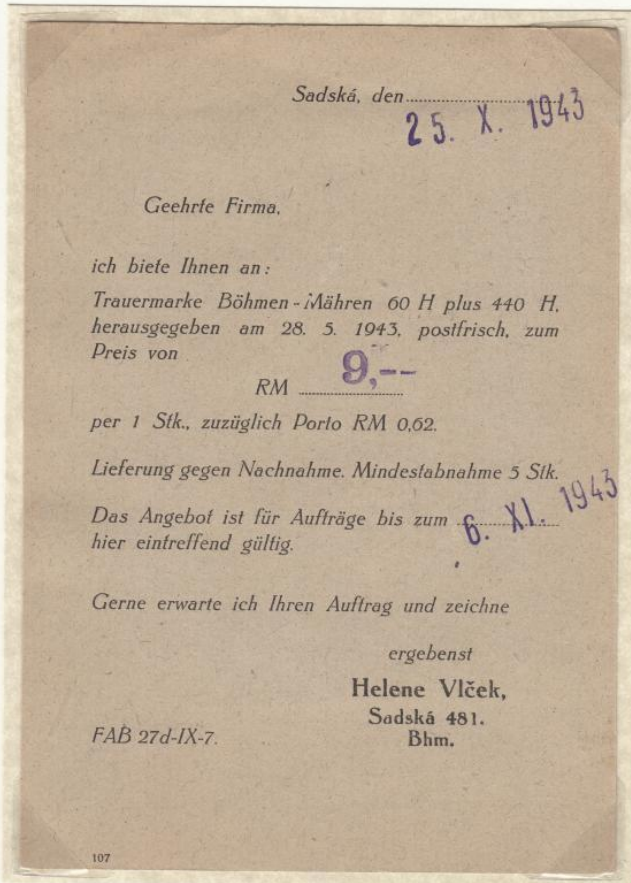 Sadská, den
25. X. 1943
Geehrte Firma,
ich biete Ihnen an:
Trauermarke Böhmen-Mähren 60 H plus 440 H,
herausgegeben am 28. 5. 1943, postfrisch, zum
Preis von
RM 9,--
per 1 Stk., zuzüglich Porto RM 0,62.
Lieferung gegen Nachnahme. Mindestabnahme 5 Stk.
Das Angebot ist für Aufträge bis zum 6. XI. 1943
hier eintreffend gültig.
Gerne erwarte ich Ihren Auftrag und zeichne
ergebenst
Helene Vlček,
Sadská 481.
Bhm.
FAB 27d-IX-7.
107